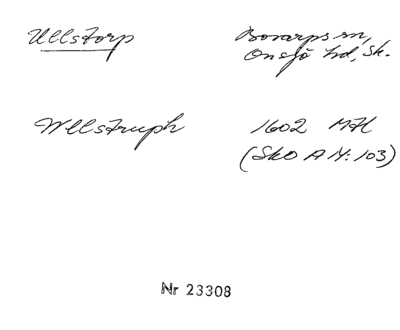 Ullstorp
Bosarps sn,
Onsjö hd, Sk.
Wllstruph
1602 MH
(Skо A N: 103)
Nr 23308